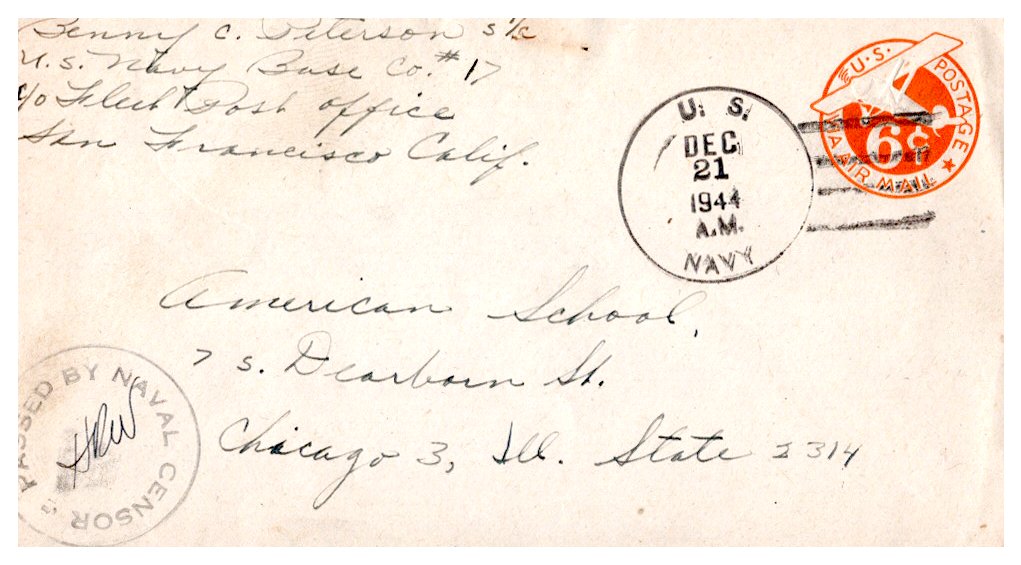 Benny C. Peterson S 1/c
U.S. Navy Base Co. #17
c/o Fleet Post office
San Francisco Calif.
U.S. POSTAGE
6¢
VIA AIR MAIL
U. S.
DEC
21
1944
A.M.
NAVY
American School,
7 S. Dearborn St.
Chicago 3, Ill. State 2314
PASSED BY NAVAL CENSOR